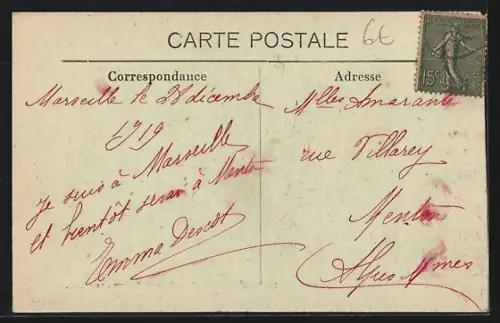 CARTE POSTALE
6€
15c
Correspondance
Adresse
Marseille le 28 décembre
1919
je suis à Marseille
et bientôt serai à Menton
Emma Descot
Mlles Amarante
rue Villarey
Menton
Alpes Mmes